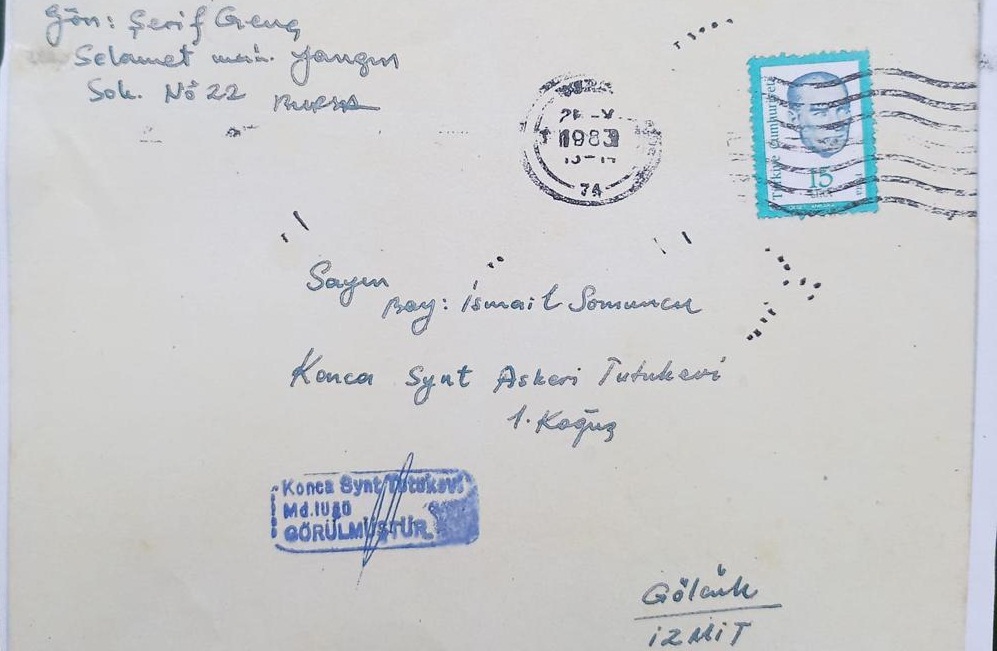 Gön: Şerif Genç
Selamet mah. Yangın
Sok. No 22 BURSA
1983
74
Türkiye Cumhuriyeti
15
Sayın
Bay: İsmail Somuncu
Konca Synt Askeri Tutukevi
1. Koğuş
Konca Synt Tutukevi
Md.lüğü
GÖRÜLMÜŞTÜR.
Gölcük
İZMİT